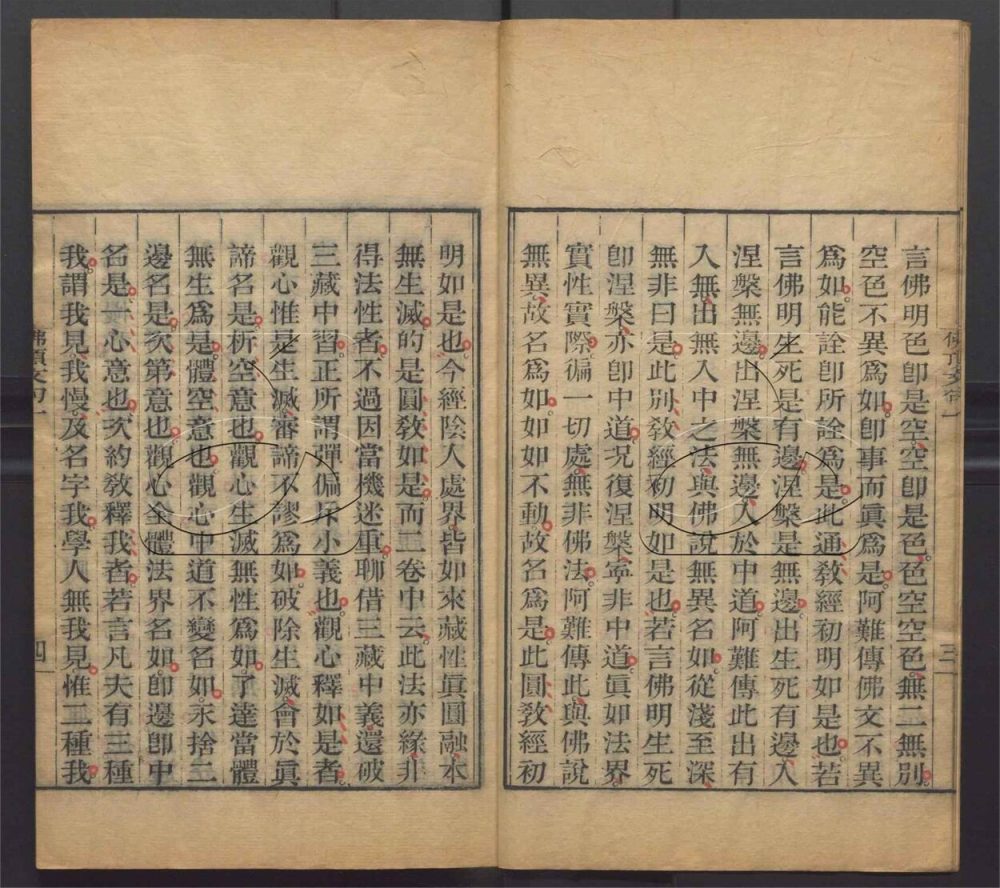 言佛明色卽是空空卽是色色空空色無二無別
空色不異爲如卽事而眞爲是阿難傳佛文不異
爲如能詮卽所詮爲是此通敎經初明如是也若
言佛明生死是有邊涅槃是無邊出生死有邊入
涅槃無邊出涅槃無邊入於中道阿難傳此出有
入無出無入中之法與佛說無異名如從淺至深
無非曰是此別敎經初明如是也若言佛明生死
卽涅槃亦卽中道况復涅槃寧非中道眞如法界
實性實際徧一切處無非佛法阿難傳此與佛說
無異故名爲如如如不動故名爲是此圓敎經初
三
明如是也今經陰入處界皆如來藏性眞圓融本
無生滅的是圓敎如是而二卷中云此法亦緣非
得法性者不過因當機迷重聊借三藏中義還破
三藏中習正所謂彈偏斥小義也觀心釋如是者
觀心惟是生滅審諦不謬爲如破除生滅會於眞
諦名是析空意也觀心生滅無性爲如了達當體
無生爲是體空意也觀心中道不變名如永捨二
邊名是次第意也觀心全體法界名如卽邊卽中
名是一心意也次約敎釋我者若言凡夫有三種
我謂我見我慢及名字我學人無我見惟二種我
佛頂文句一
四